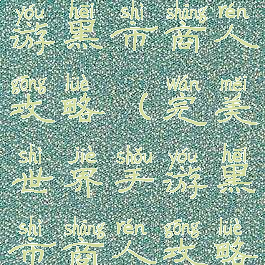 yóu hēi shì shāng rén
游黑市商人
gōng lüè wán měi
攻略（完美
shì jiè shǒu yóu hēi
世界手游黑
shì shāng rén gōng lüè
市商人攻略